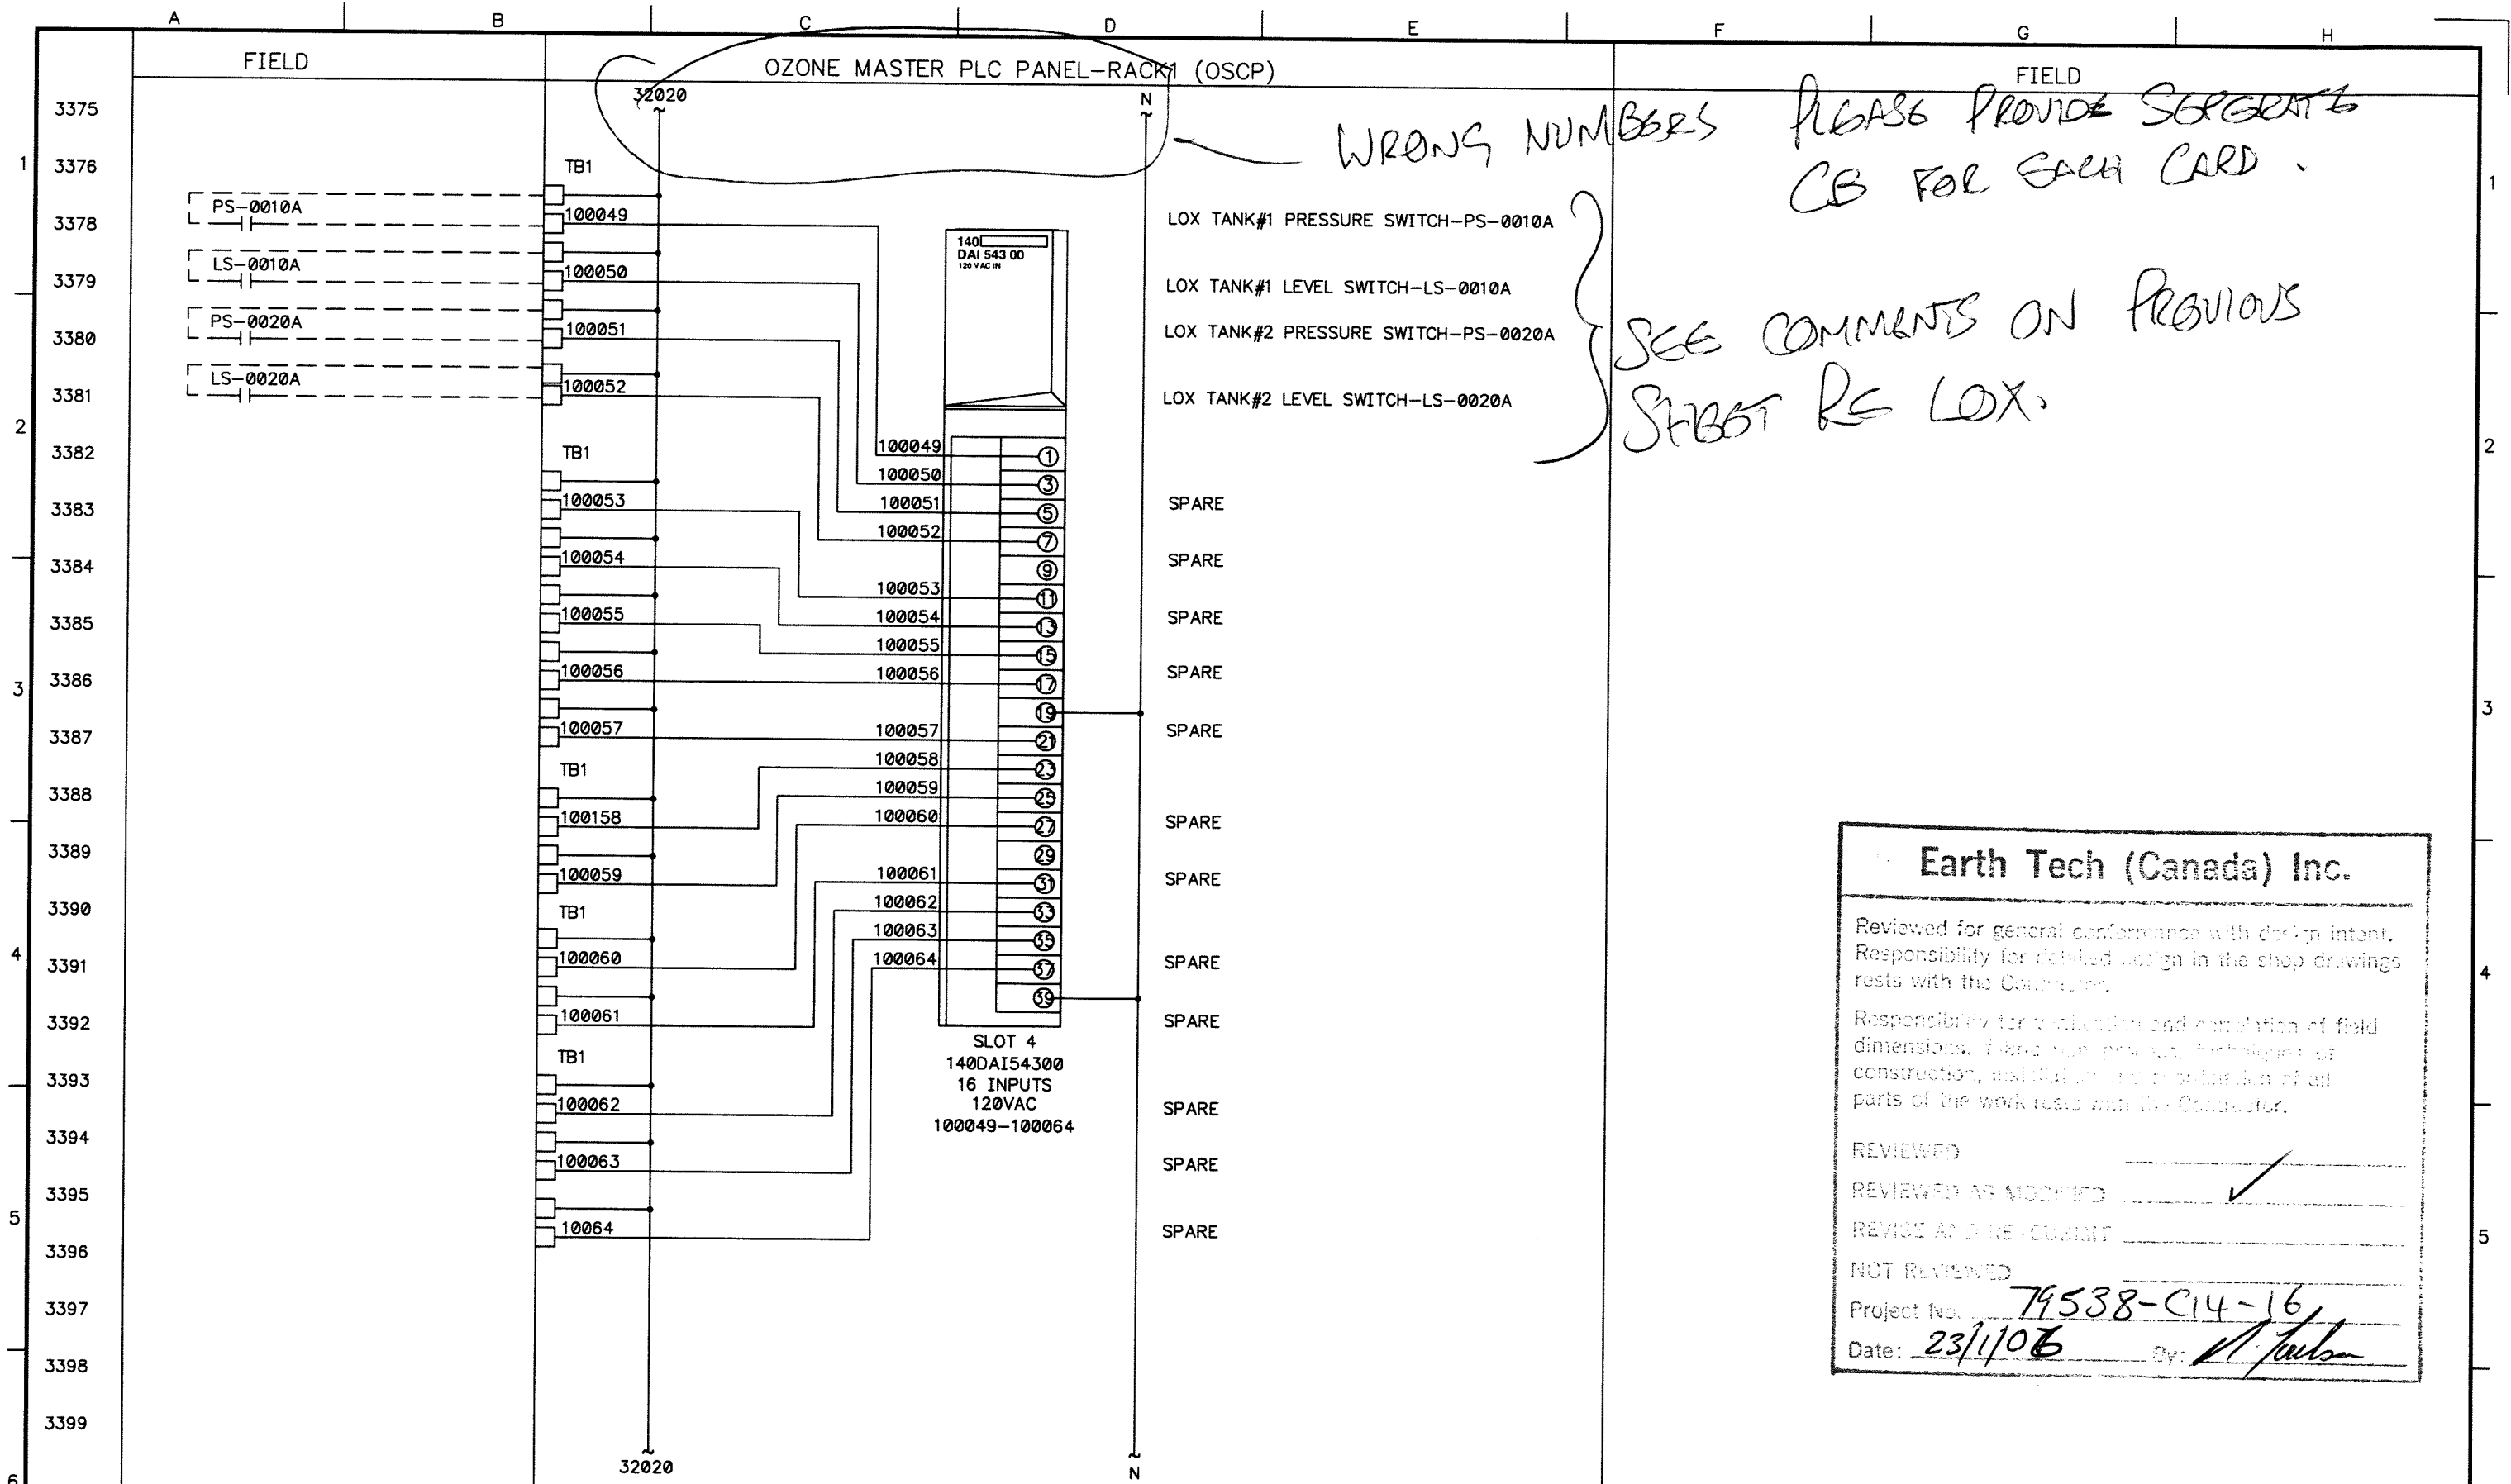 A B C D E F G H
FIELD
OZONE MASTER PLC PANEL-RACK1 (OSCP)
FIELD
32020
N
WRONG NUMBERS PLEASE PROVIDE SEPERATE
CB FOR EACH CARD.
SEE COMMENTS ON PREVIOUS
SHEET RE LOX.
1
2
3
4
5
6
3375
3376
3378
3379
3380
3381
3382
3383
3384
3385
3386
3387
3388
3389
3390
3391
3392
3393
3394
3395
3396
3397
3398
3399
PS-0010A
LS-0010A
PS-0020A
LS-0020A
TB1
100049
100050
100051
100052
TB1
100053
100054
100055
100056
100057
TB1
100158
100059
TB1
100060
100061
TB1
100062
100063
10064
32020
140
DAI 543 00
120 VAC IN
100049 1
100050 3
100051 5
100052 7
9
100053 11
100054 13
100055 15
100056 17
19
100057 21
100058 23
100059 25
100060 27
29
100061 31
100062 33
100063 35
100064 37
39
SLOT 4
140DAI54300
16 INPUTS
120VAC
100049-100064
N
LOX TANK#1 PRESSURE SWITCH-PS-0010A
LOX TANK#1 LEVEL SWITCH-LS-0010A
LOX TANK#2 PRESSURE SWITCH-PS-0020A
LOX TANK#2 LEVEL SWITCH-LS-0020A
SPARE
SPARE
SPARE
SPARE
SPARE
SPARE
SPARE
SPARE
SPARE
SPARE
SPARE
SPARE
1
2
3
4
5
Earth Tech (Canada) Inc.
Reviewed for general conformance with design intent.
Responsibility for detailed design in the shop drawings
rests with the Contractor.
Responsibility for and correlation of field
dimensions, techniques of
construction, of all
parts of the work rests with the Contractor.
REVIEWED
REVIEWED AS MODIFIED ✓
REVISE AND RE-SUBMIT
NOT REVIEWED
Project No. 79538-C14-16
Date: 23/1/06 By: